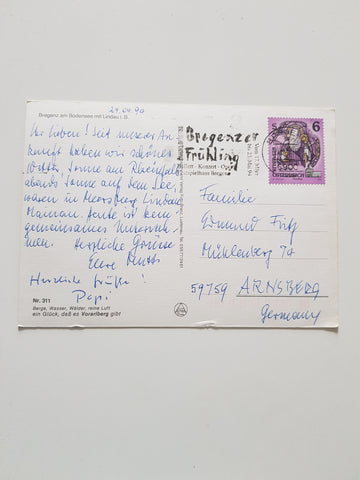 24.04.94
Bregenz am Bodensee mit Lindau i. B.
Ihr lieben! Seit unserer An
kunft haben wir schönes
Wetter, Sonne am Rheinfall
abends Sonne auf dem See
waren in Meersburg Lindau
Mainau. Heute ist kein
gemeinsames Unterneh-
men. Herzliche Grüsse
Eure
Herzliche Grüße!
Papi
Nr. 311
Berge, Wasser, Wälder, reine Luft
ein Glück, daß es Vorarlberg gibt
Bregenzer
Frühling
Ballett · Konzert · Oper
Festspielhaus Bregenz
S 6
Familie
Edmund Fritz
Mühlenberg 74
59759 ARNSBERG
Germany